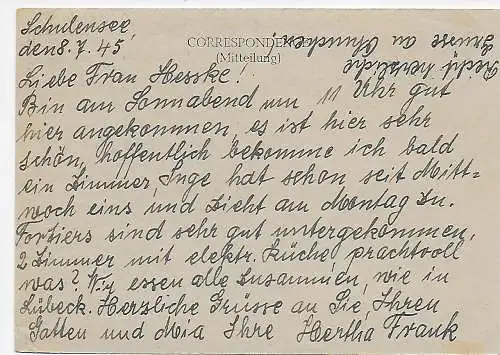 Schulensee,
den 8. 7. 45
CORRESPONDENZ
(Mitteilung)
Liebe Frau Hesske!
Bin am Sonnabend um 11 Uhr gut
hier angekommen, es ist hier sehr
schön, hoffentlich bekomme ich bald
ein Zimmer, Inge hat schon seit Mitt=
woch eins und zieht am Montag zu.
sind sehr gut untergekommen,
2 Zimmer mit elektr. Küche prachtvoll
was? Wir essen alle zusammen, wie in
Lübeck. Herzliche Grüsse an Sie, Ihren
Gatten und Mia Ihre Hertha Frank
Recht herzliche
Grüsse an